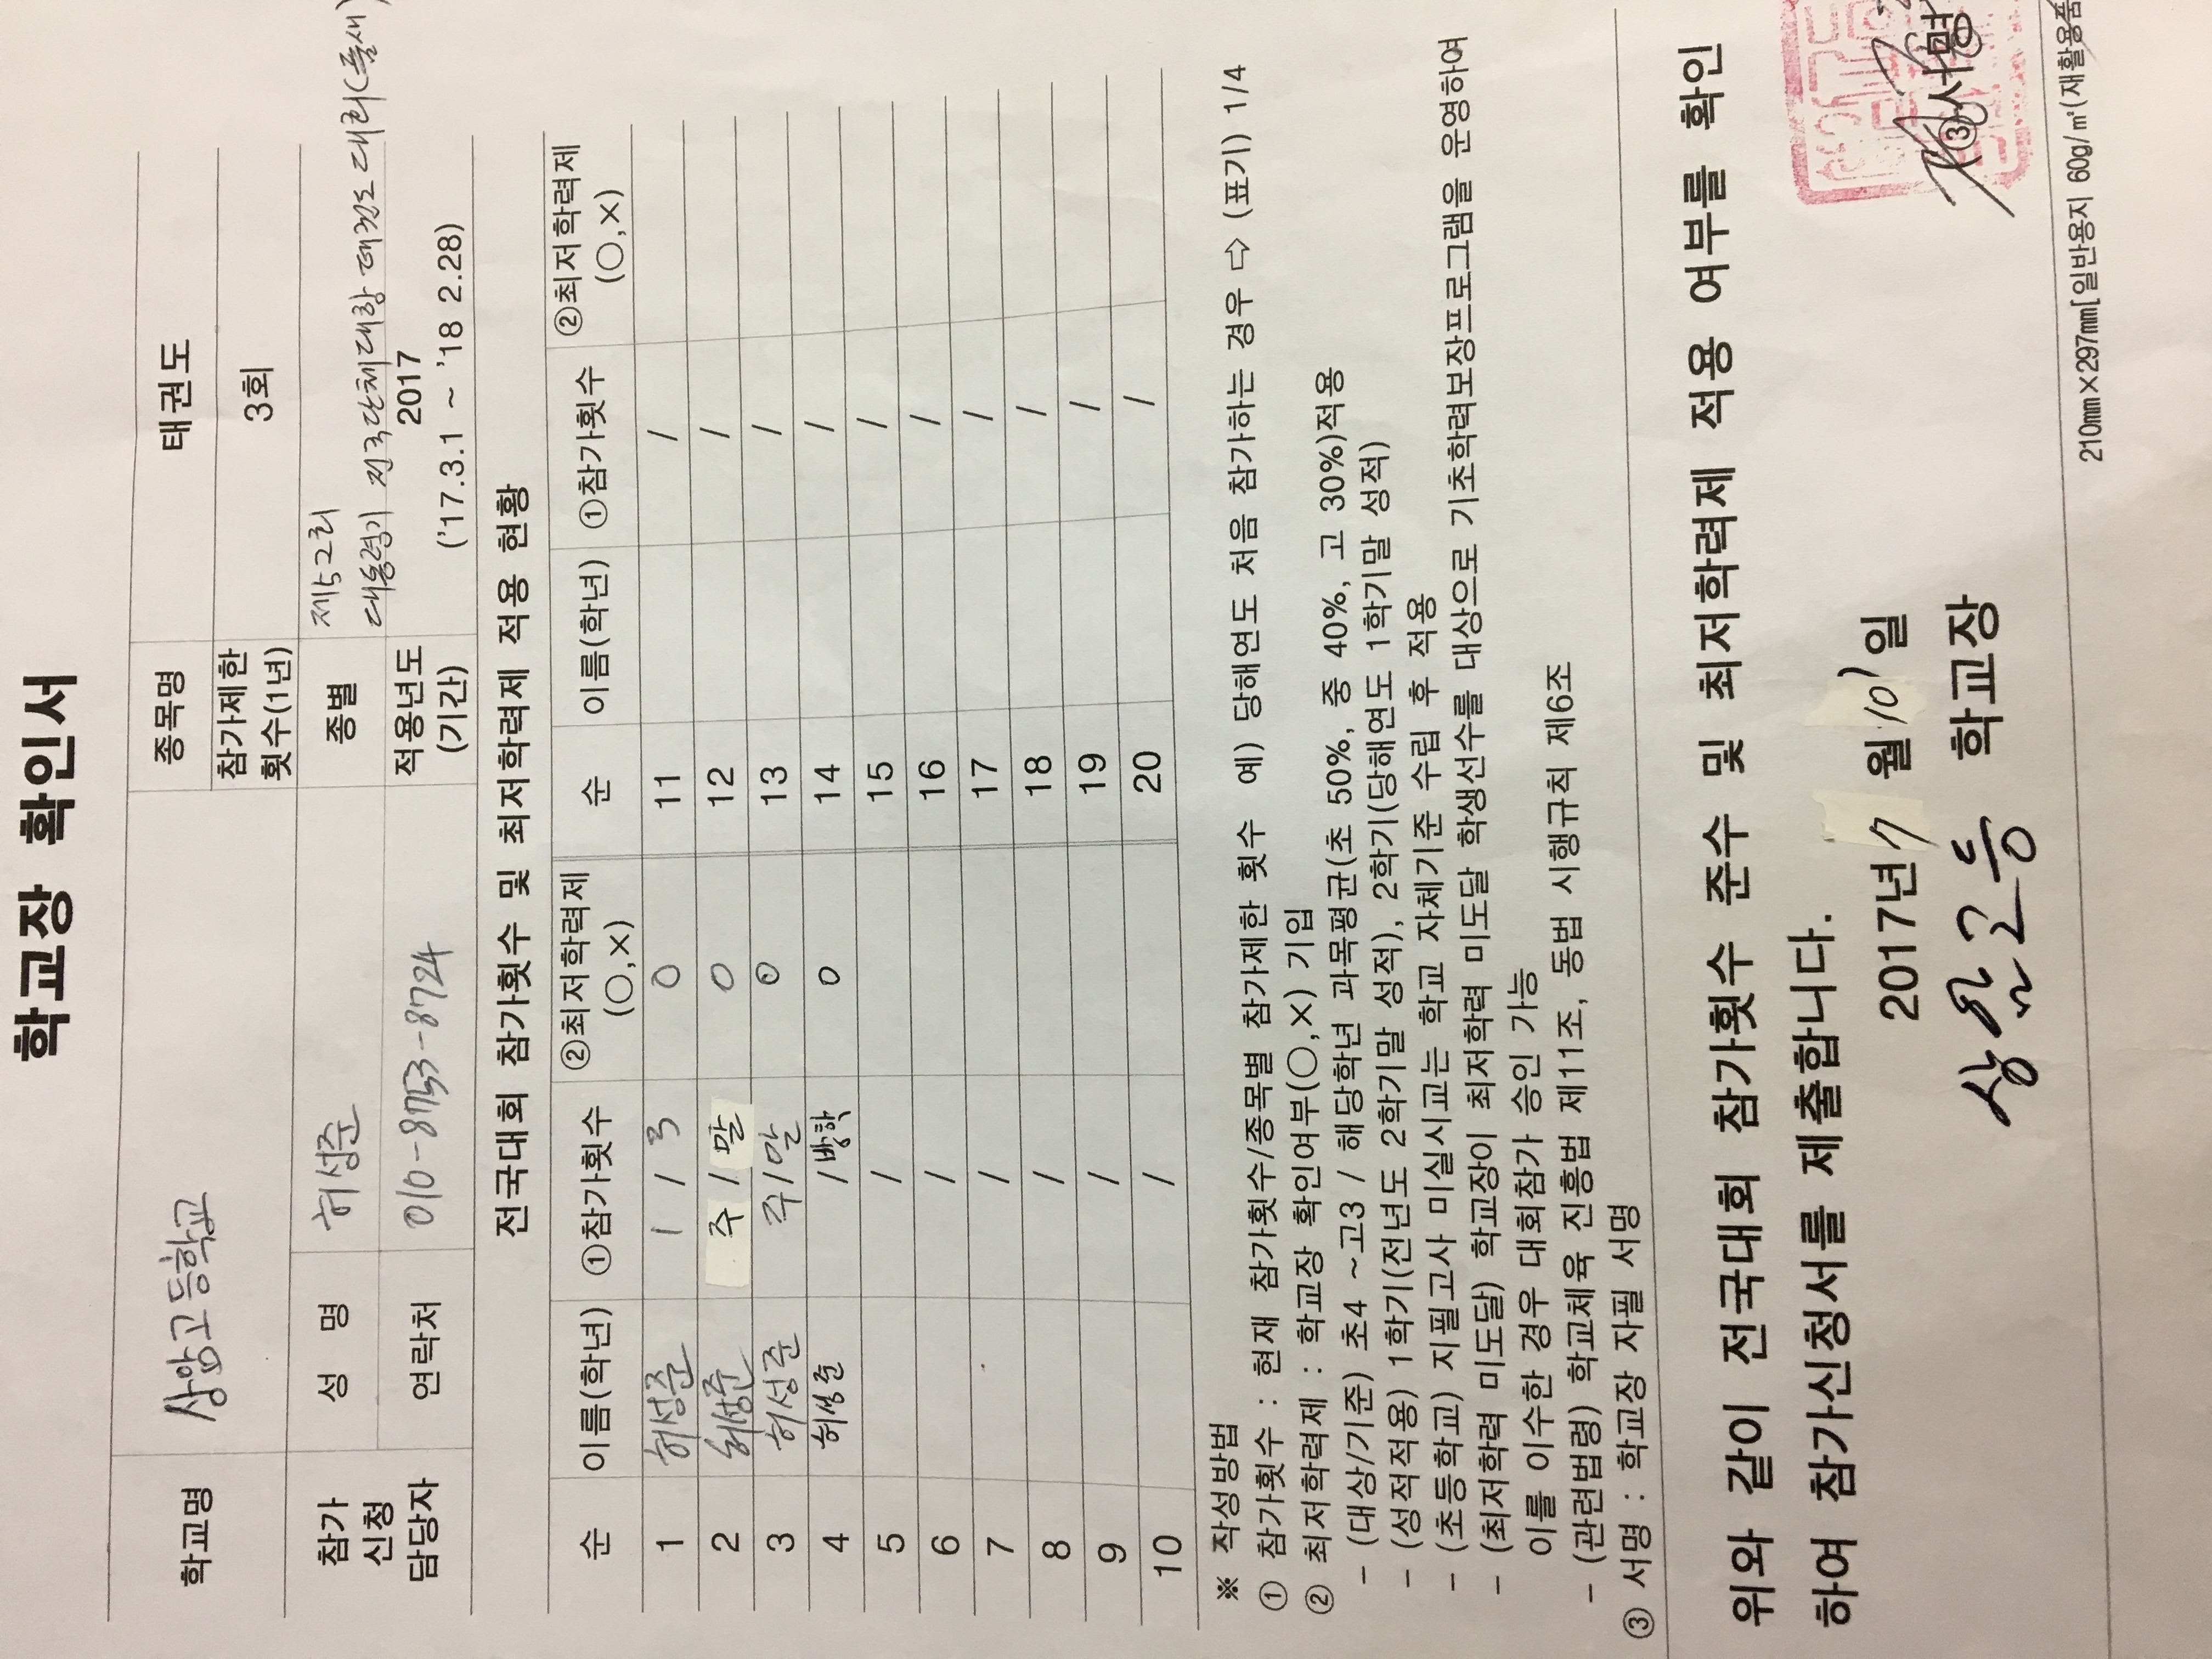 학교장 확인서
학교명 상암고등학교 종목명 태권도
참가제한 횟수(1년) 3회
참가 신청 담당자 성 명 허성준 종별 제52회 대통령기 전국단체대항 태권도 대회(품새)
연락처 010-8753-8724 적용년도 (기간) 2017 ('17.3.1 ~ '18 2.28)
전국대회 참가횟수 및 최저학력제 적용 현황
순 이름(학년) ①참가횟수 ②최저학력제 (○,×) 순 이름(학년) ①참가횟수 ②최저학력제 (○,×)
1 허성준 1 / 3 ○ 11 /
2 허성준 주 / 말 ○ 12 /
3 허성준 주 / 말 ○ 13 /
4 허성준 / 방학 ○ 14 /
5 / 15 /
6 / 16 /
7 / 17 /
8 / 18 /
9 / 19 /
10 / 20 /
※ 작성방법
① 참가횟수 : 현재 참가횟수/종목별 참가제한 횟수 예) 당해연도 처음 참가하는 경우 ⇨ (표기) 1/4
② 최저학력제 : 학교장 확인여부(○,×) 기입
- (대상/기준) 초4 ~고3 / 해당학년 과목평균(초 50%, 중 40%, 고 30%)적용
- (성적적용) 1학기(전년도 2학기말 성적), 2학기(당해연도 1학기말 성적)
- (초등학교) 지필고사 미실시교는 학교 자체기준 수립 후 적용
- (최저학력 미도달) 학교장이 최저학력 미도달 학생선수를 대상으로 기초학력보장프로그램을 운영하여
이를 이수한 경우 대회참가 승인 가능
- (관련법령) 학교체육 진흥법 제11조, 동법 시행규칙 제6조
③ 서명 : 학교장 자필 서명
위와 같이 전국대회 참가횟수 준수 및 최저학력제 적용 여부를 확인
하여 참가신청서를 제출합니다.
2017년 7 월 10 일
상암고등 학교장 ③서명
210mm×297mm[일반용지 60g/㎡(재활용품